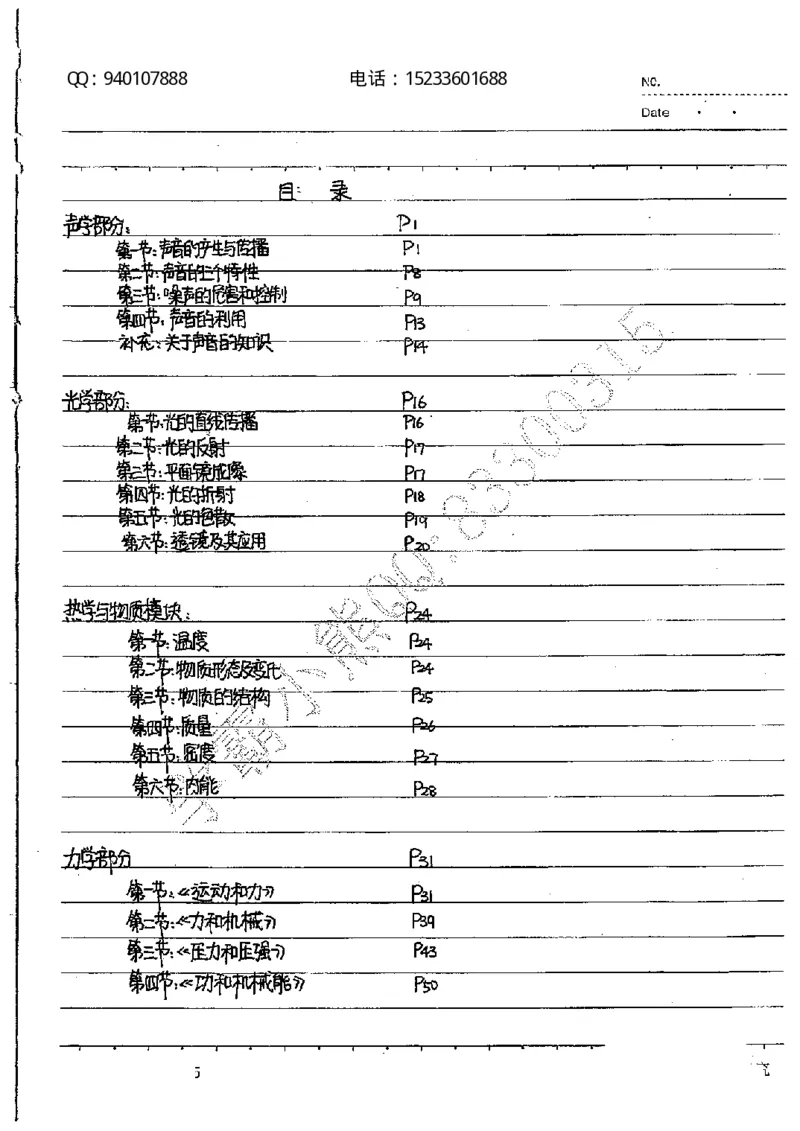 QQ：940107888 电话：15233601688
NO.
Date
目录
声学部分： P1
第一节：声音的产生与传播 P1
第二节：声音的三个特性 P8
第三节：噪声的危害和控制 P9
第四节：声音的利用 P13
补充：关于声音的知识 P14
光学部分： P16
第一节：光的直线传播 P16
第二节：光的反射 P17
第三节：平面镜成像 P17
第四节：光的折射 P18
第五节：光的色散 P19
第六节：透镜及其应用 P20
热学与物质模块： P24
第一节：温度 P24
第二节：物质形态及变化 P24
第三节：物质的结构 P25
第四节：质量 P26
第五节：密度 P27
第六节：内能 P28
力学部分 P31
第一节：《运动和力》 P31
第二节：《力和机械》 P39
第三节：《压力和压强》 P43
第四节：《功和机械能》 P50
学霸小熊QQ:83300315
5